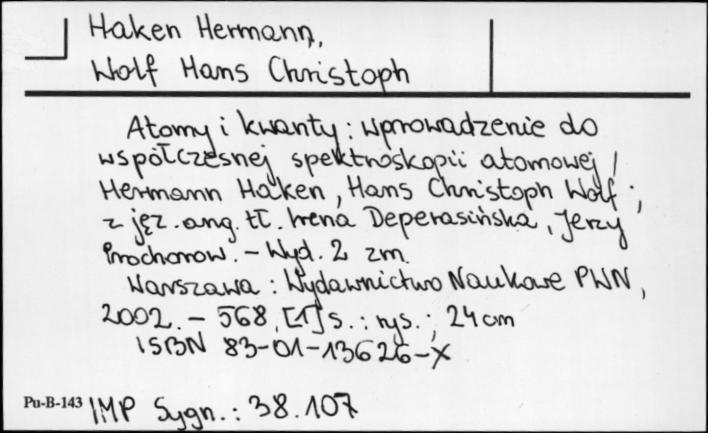 Haken Hermann,
Wolf Hans Christoph
Atomy i kwanty : wprowadzenie do
współczesnej spektroskopii atomowej /
Hermann Haken, Hans Christoph Wolf ;
z jęz. ang. tł. Irena Deperasińska, Jerzy
Prochorow. - Wyd. 2 zm.
Warszawa : Wydawnictwo Naukowe PWN,
2002. - 568, [1] s. : rys. ; 24 cm
ISBN 83-01-13626-X
Pu-B-143 IMP Sygn. : 38.107